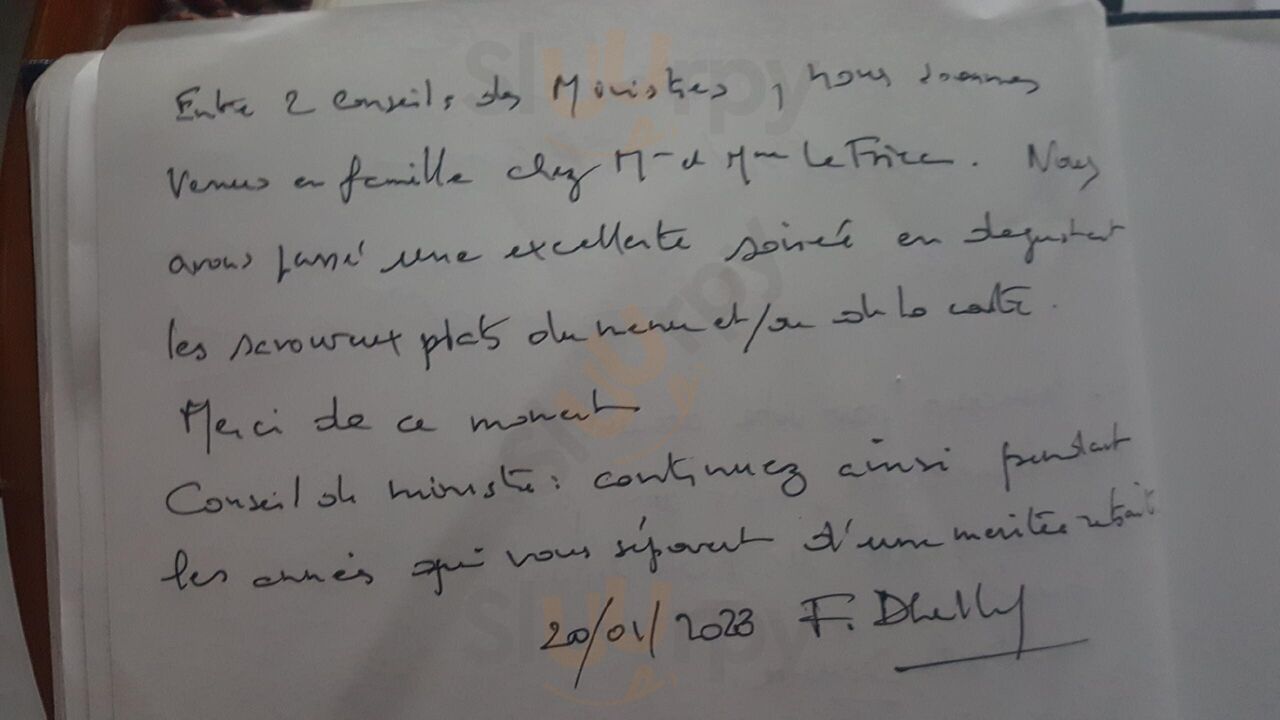 Entre 2 Conseils des Ministres, nous sommes
venus en famille chez Mr et Mme Le Tricc. Nous
avons passé une excellente soirée en degustant
les savoureux plats du menu et/ou de la carte.
Merci de ce moment
Conseil de ministre : continuez ainsi pendant
les années qui vous séparent d'une meritée retraite
20/01/2023 F. Dhelly
sluurpy
sluurpy
sluurpy